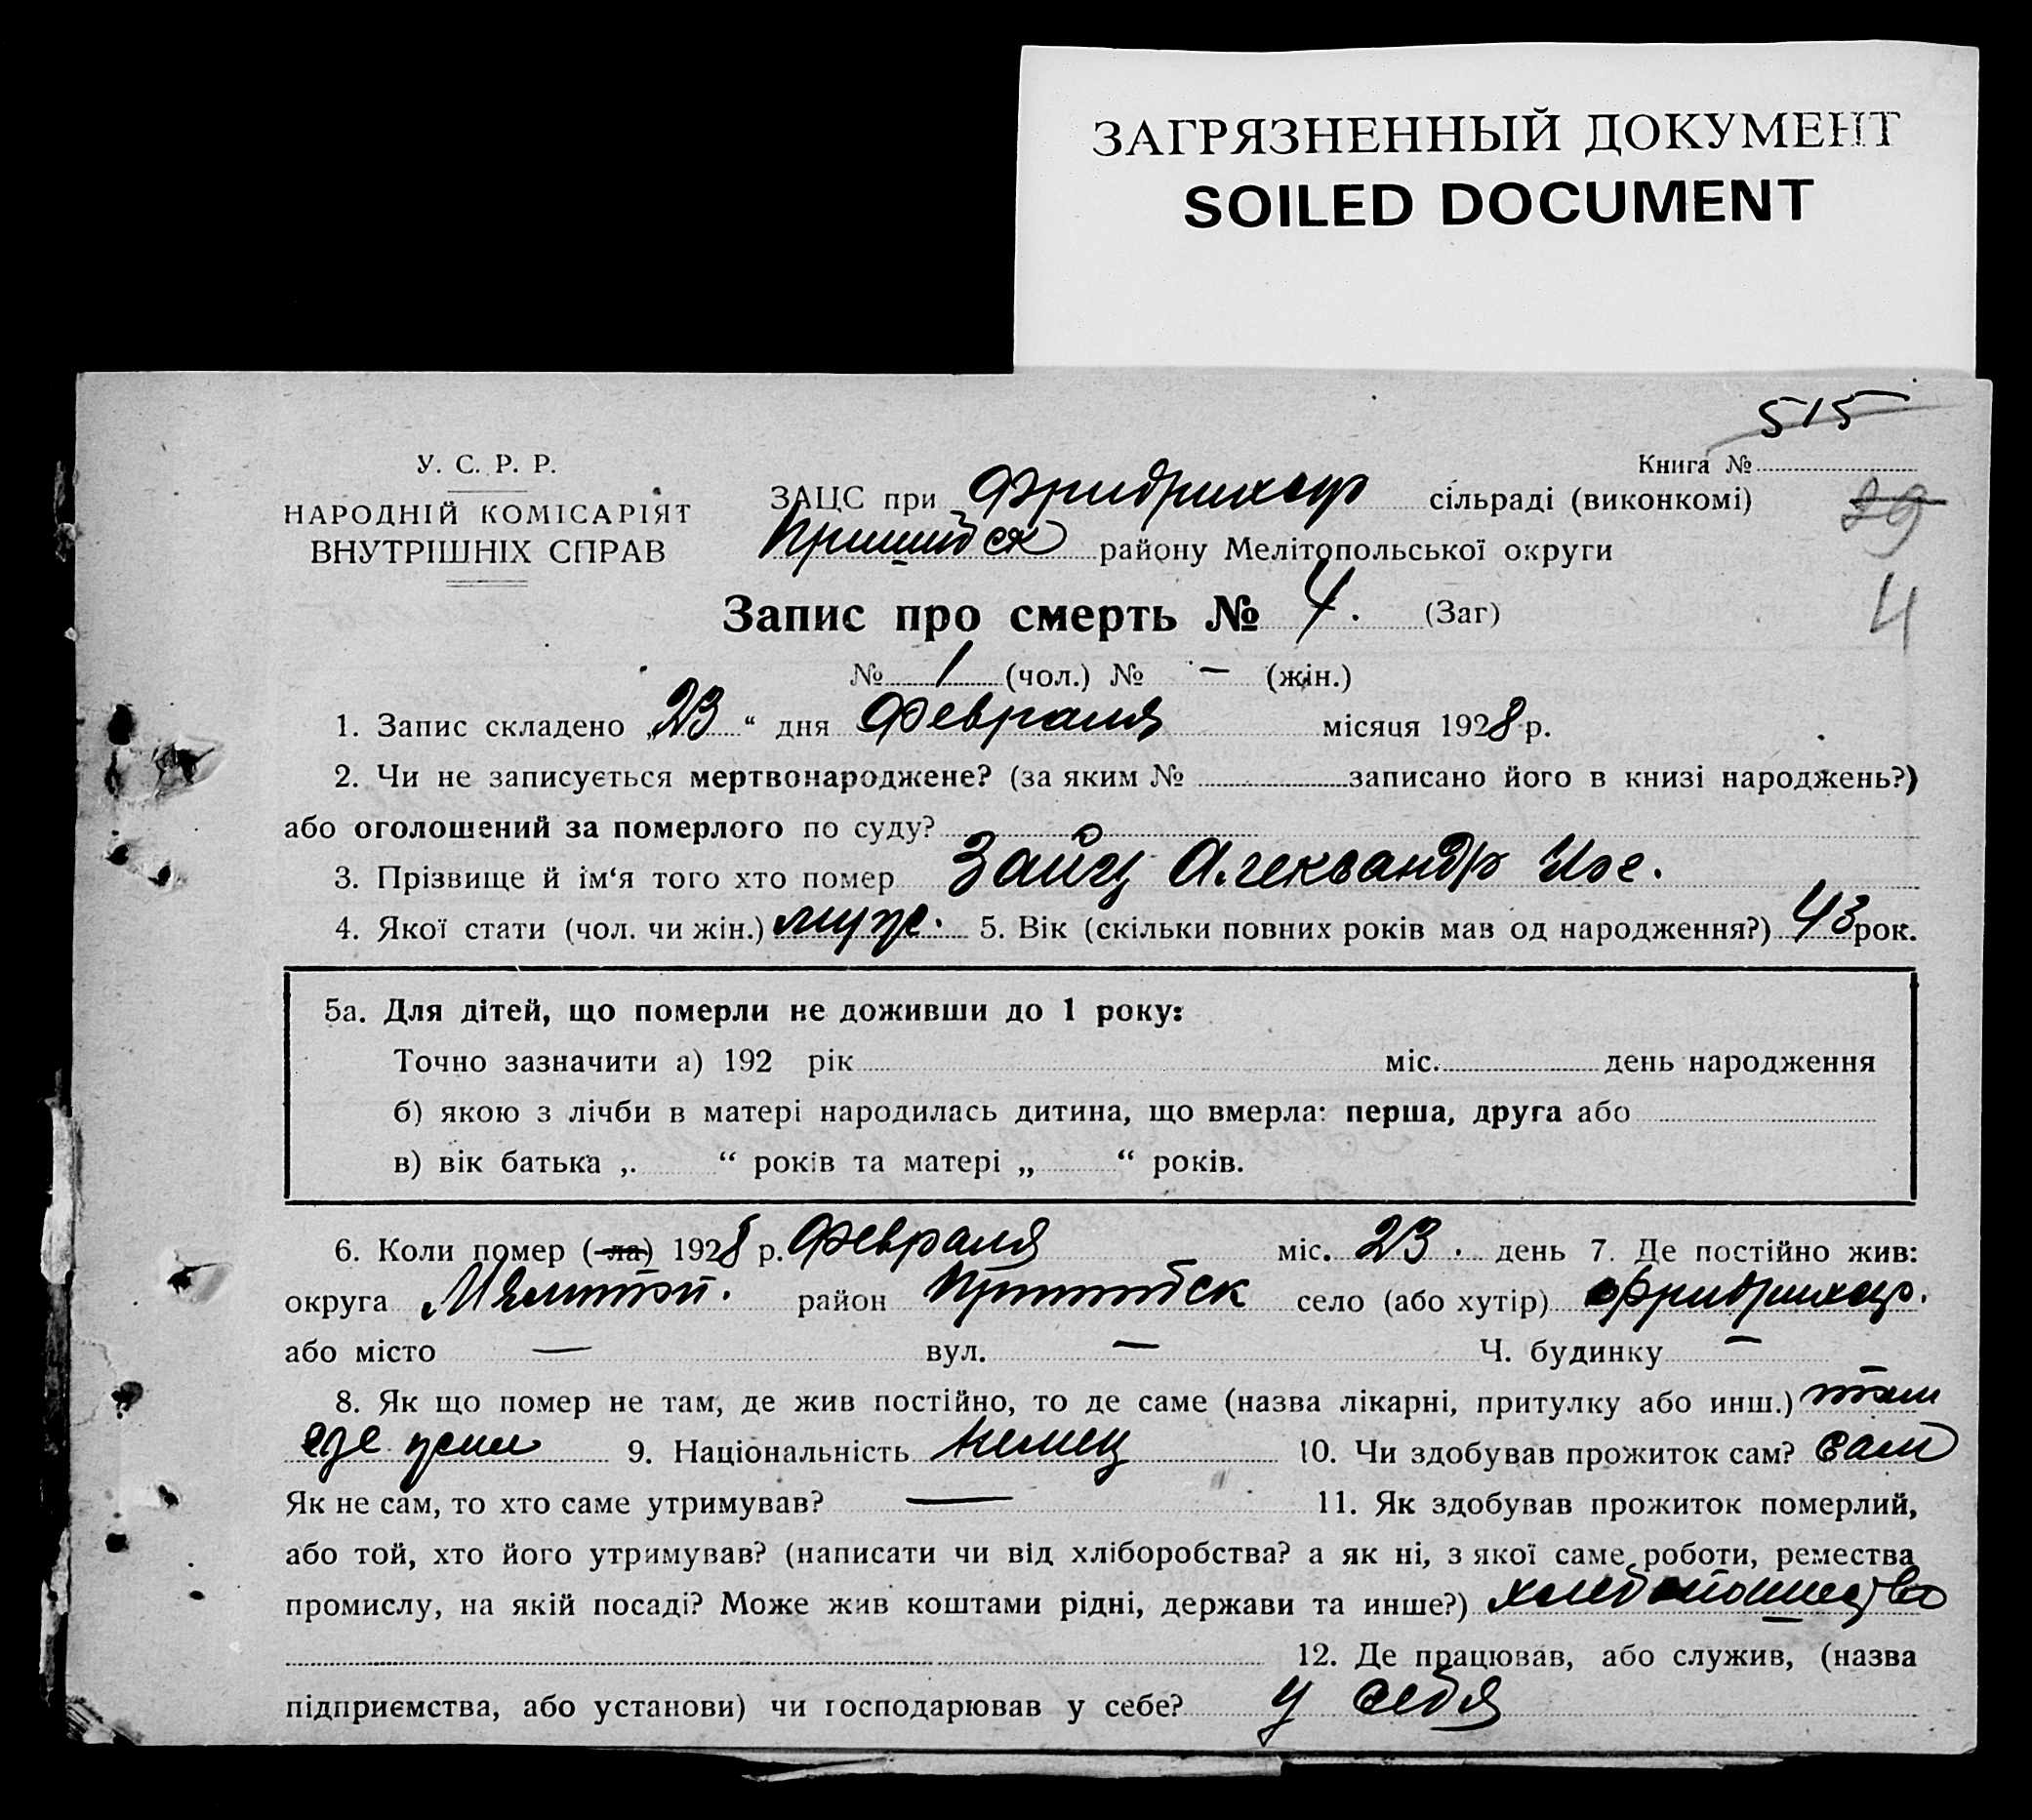 ЗАГРЯЗНЕННЫЙ ДОКУМЕНТ
SOILED DOCUMENT
515
У. С. Р. Р.
Книга №
НАРОДНІЙ КОМІСАРІЯТ
ВНУТРІШНІХ СПРАВ
ЗАЦС при Фридрихсф сільраді (виконкомі)
29
Пришибск району Мелітопольської округи
Запис про смерть № 4. (Заг)
4
№ 1 (чол.) № — (жін.)
1. Запис складено „23“ дня Февраля місяця 1928 р.
2. Чи не записується мертвонароджене? (за яким № записано його в книзі народжень?)
або оголошений за померлого по суду?
3. Прізвище й ім‘я того хто помер Зайц Александр Иос.
4. Якої стати (чол. чи жін.) муж. 5. Вік (скільки повних років мав од народження?) 43 рок.
5а. Для дітей, що померли не доживши до 1 року:
Точно зазначити а) 192 рік міс. день народження
б) якою з лічби в матері народилась дитина, що вмерла: перша, друга або
в) вік батька „ “ років та матері „ “ років.
6. Коли помер (-ла) 1928 р. Февраля міс. 23. день 7. Де постійно жив:
округа Мелитоп. район Пришибск село (або хутір) Фридрихсф.
або місто — вул. — Ч. будинку —
8. Як що помер не там, де жив постійно, то де саме (назва лікарні, притулку або инш.) там
где жил 9. Національність немец 10. Чи здобував прожиток сам? сам
Як не сам, то хто саме утримував? — 11. Як здобував прожиток померлий,
або той, хто його утримував? (написати чи від хліборобства? а як ні, з якої саме роботи, ремества
промислу, на якій посаді? Може жив коштами рідні, держави та инше?) хлебопашество
12. Де працював, або служив, (назва
підприємства, або установи) чи господарював у себе? у себя